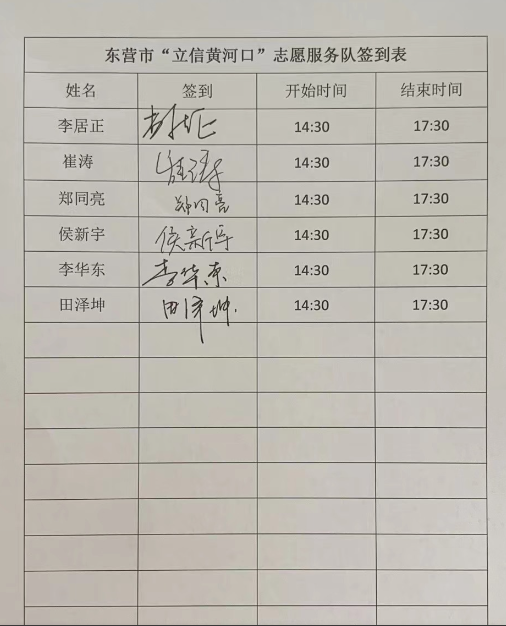 东营市“立信黄河口”志愿服务队签到表
姓名 签到 开始时间 结束时间
李居正 14:30 17:30
崔涛 崔涛 14:30 17:30
郑同亮 郑同亮 14:30 17:30
侯新宇 侯新宇 14:30 17:30
李华东 李华东 14:30 17:30
田泽坤 田泽坤. 14:30 17:30